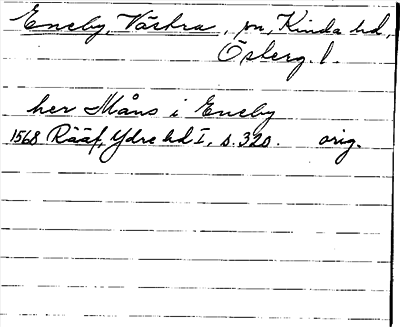 Eneby, Västra, sn, Kinda hd,
Österg. l.
her Måns i Eneby
1568 Rääf, Ydre hd I, s. 320. orig.